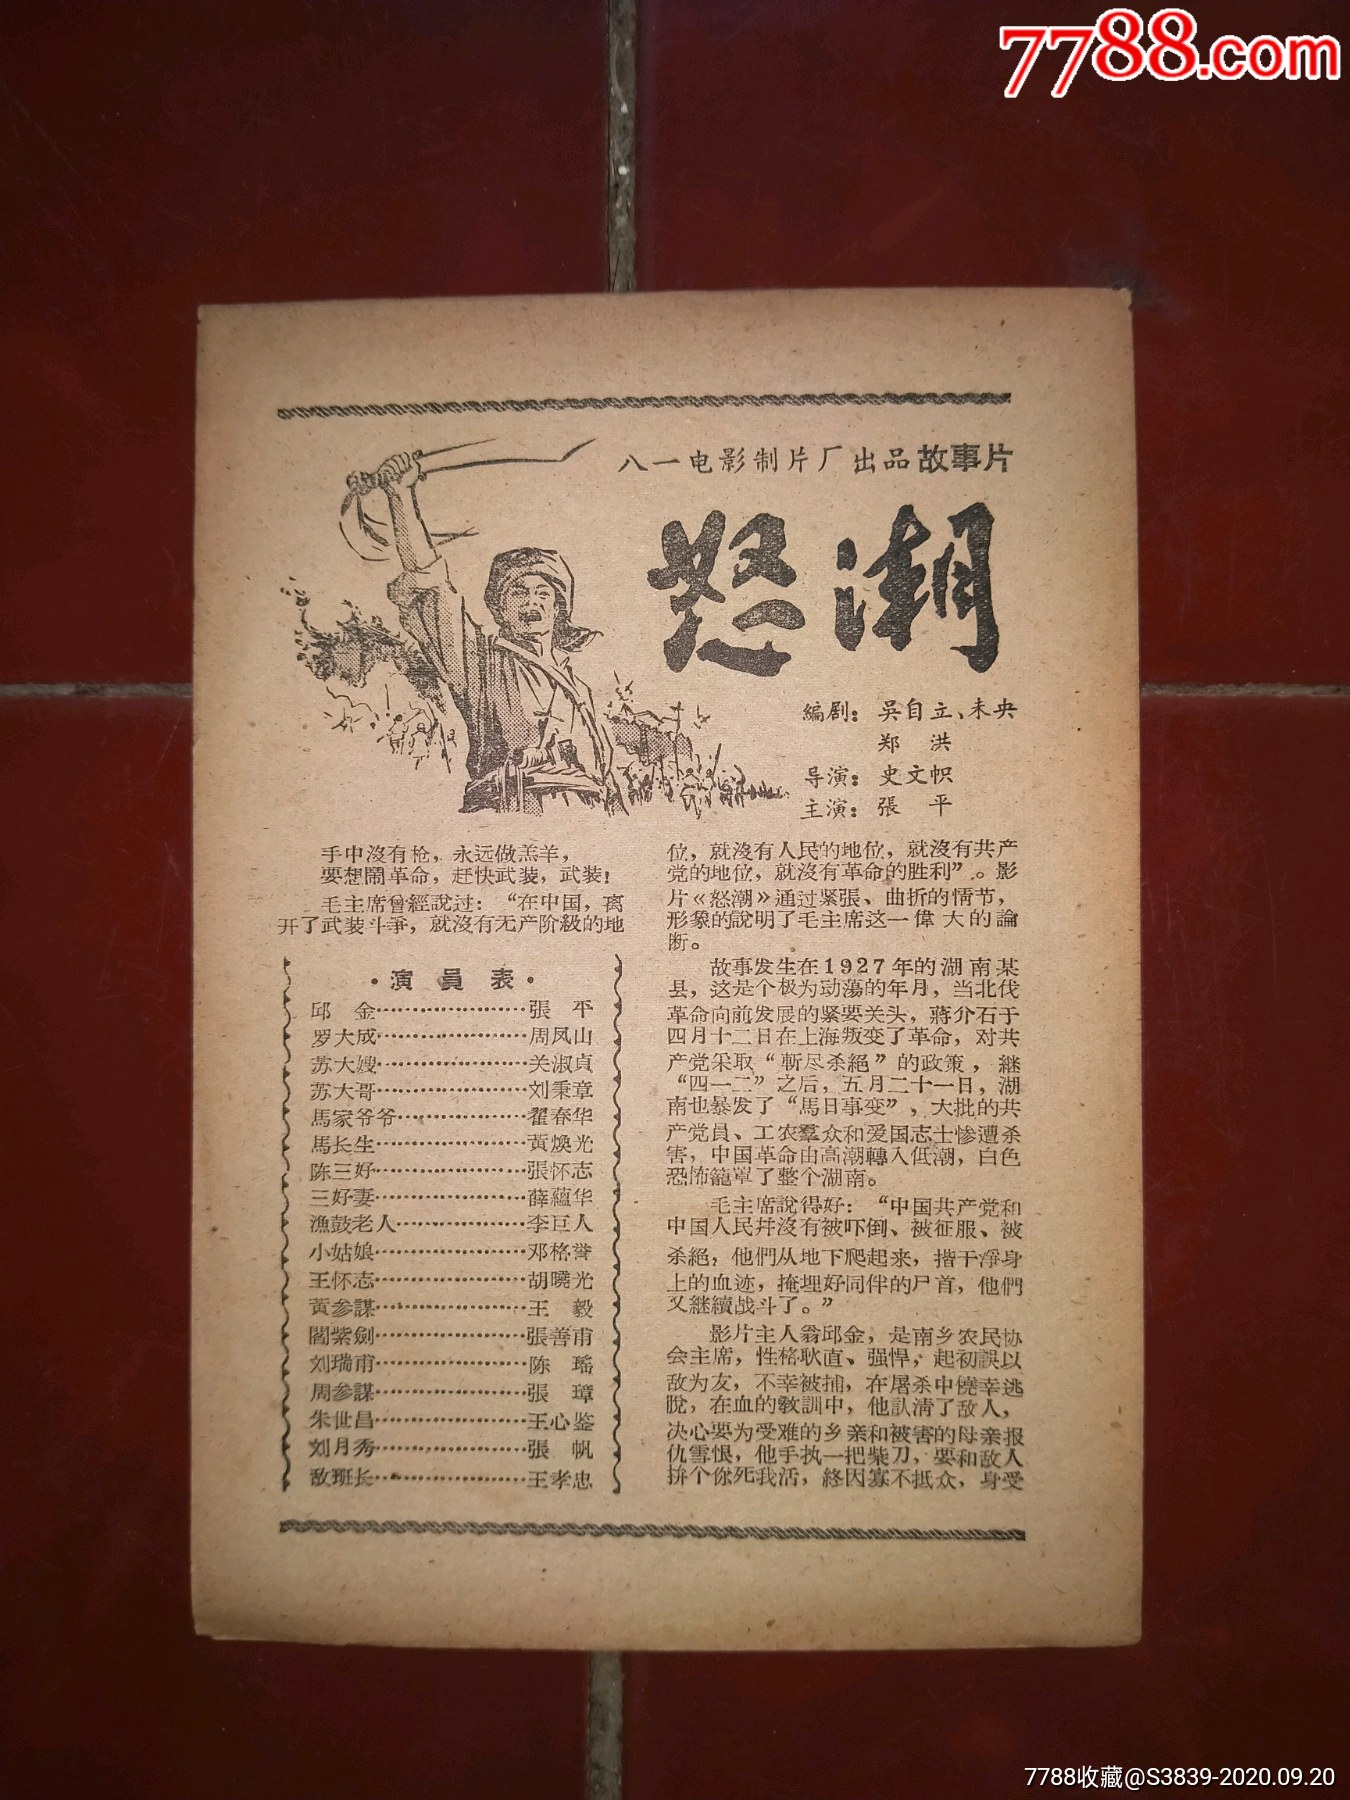 7788.com
八一电影制片厂出品故事片
怒潮
編剧：吳自立、未央
郑　洪
导演：史文帜
主演：張　平
手中沒有枪，永远做羔羊，
要想鬧革命，赶快武装，武装！
毛主席曾經說过：“在中国，离
开了武装斗爭，就沒有无产阶級的地
·演員表·
邱　金…………………張　平
罗大成…………………周凤山
苏大嫂…………………关淑貞
苏大哥…………………刘秉章
馬家爷爷………………翟春华
馬长生…………………黃煥光
陈三好…………………張怀志
三好妻…………………薛蘊华
漁鼓老人………………李巨人
小姑娘…………………邓格誉
王怀志…………………胡曉光
黄参謀…………………王　毅
閻紫劍…………………張善甫
刘瑞甫…………………陈　瑤
周参謀…………………張　璋
朱世昌…………………王心鉴
刘月秀…………………張　帆
敌班长…………………王孝忠
位，就沒有人民的地位，就沒有共产
党的地位，就沒有革命的胜利”。影
片《怒潮》通过紧張、曲折的情节，
形象的說明了毛主席这一偉大的論
断。
故事发生在1927年的湖南某
县，这是个极为动荡的年月，当北伐
革命向前发展的紧要关头，蔣介石于
四月十二日在上海叛变了革命，对共
产党采取“斬尽杀絕”的政策，継
“四一二”之后，五月二十一日，湖
南也暴发了“馬日事变”，大批的共
产党員、工农羣众和爱国志士惨遭杀
害，中国革命由高潮轉入低潮，白色
恐怖籠罩了整个湖南。
毛主席說得好：“中国共产党和
中国人民幷沒有被吓倒、被征服、被
杀絕，他們从地下爬起来，揩干淨身
上的血迹，掩埋好同伴的尸首，他們
又継續战斗了。”
影片主人翁邱金，是南乡农民协
会主席，性格耿直、强悍，起初誤以
敌为友，不幸被捕，在屠杀中僥幸逃
脫，在血的敎訓中，他认清了敌人，
决心要为受难的乡亲和被害的母亲报
仇雪恨，他手执一把柴刀，要和敌人
拚个你死我活，終因寡不抵众，身受
7788收藏@S3839-2020.09.20